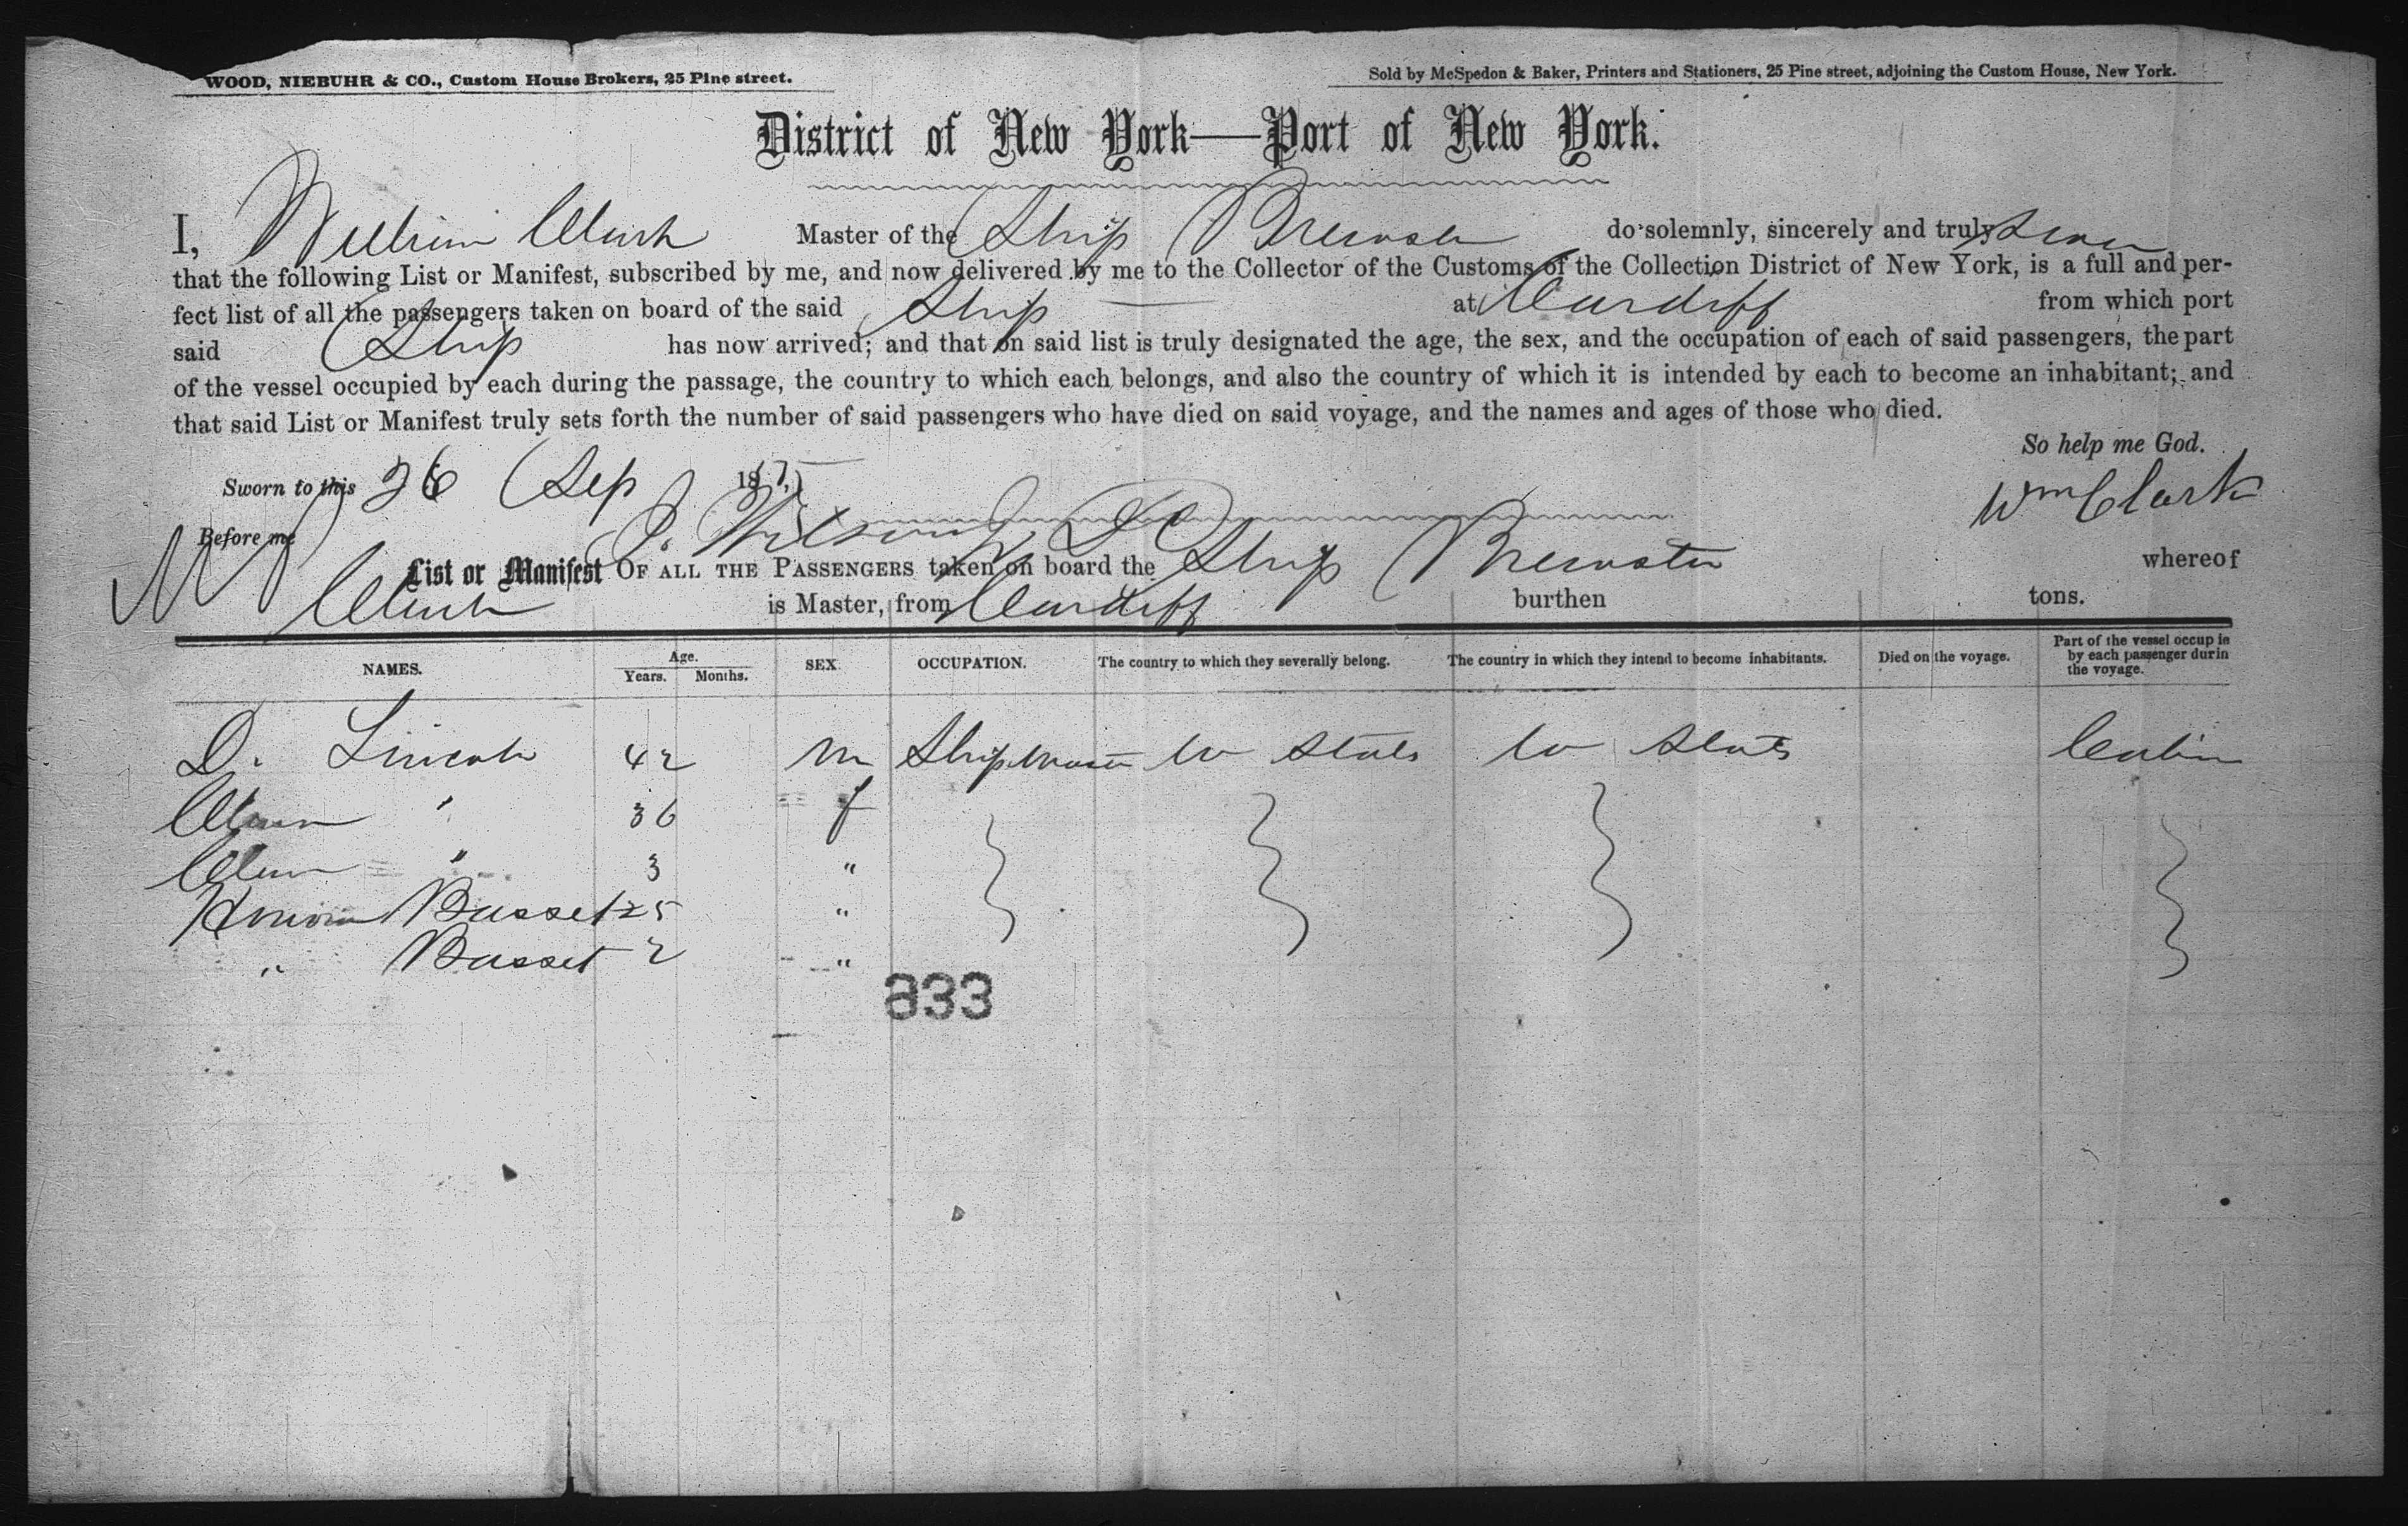 WOOD, NIEBUHR & CO., Custom House Brokers, 25 Pine street.
Sold by McSpedon & Baker, Printers and Stationers, 25 Pine street, adjoining the Custom House, New York.
District of New York—Port of New York.
I, William Clark Master of the Ship Brewster do solemnly, sincerely and truly swear
that the following List or Manifest, subscribed by me, and now delivered by me to the Collector of the Customs of the Collection District of New York, is a full and per-
fect list of all the passengers taken on board of the said Ship at Cardiff from which port
said Ship has now arrived; and that on said list is truly designated the age, the sex, and the occupation of each of said passengers, the part
of the vessel occupied by each during the passage, the country to which each belongs, and also the country of which it is intended by each to become an inhabitant; and
that said List or Manifest truly sets forth the number of said passengers who have died on said voyage, and the names and ages of those who died.
So help me God.
Sworn to this 26 Sep 18
Wm Clark
Before me J. Wilson
List or Manifest OF ALL THE PASSENGERS taken on board the Ship Brewster whereof
Clark is Master, from Cardiff burthen tons.
NAMES. Age. Years. Months. SEX. OCCUPATION. The country to which they severally belong. The country in which they intend to become inhabitants. Died on the voyage. Part of the vessel occup ie by each passenger durin the voyage.
D. Lincoln 42 m Ship master U States U States Cabin
" 36 f
" 3 "
Basset 25 "
" Basset 2 "
833